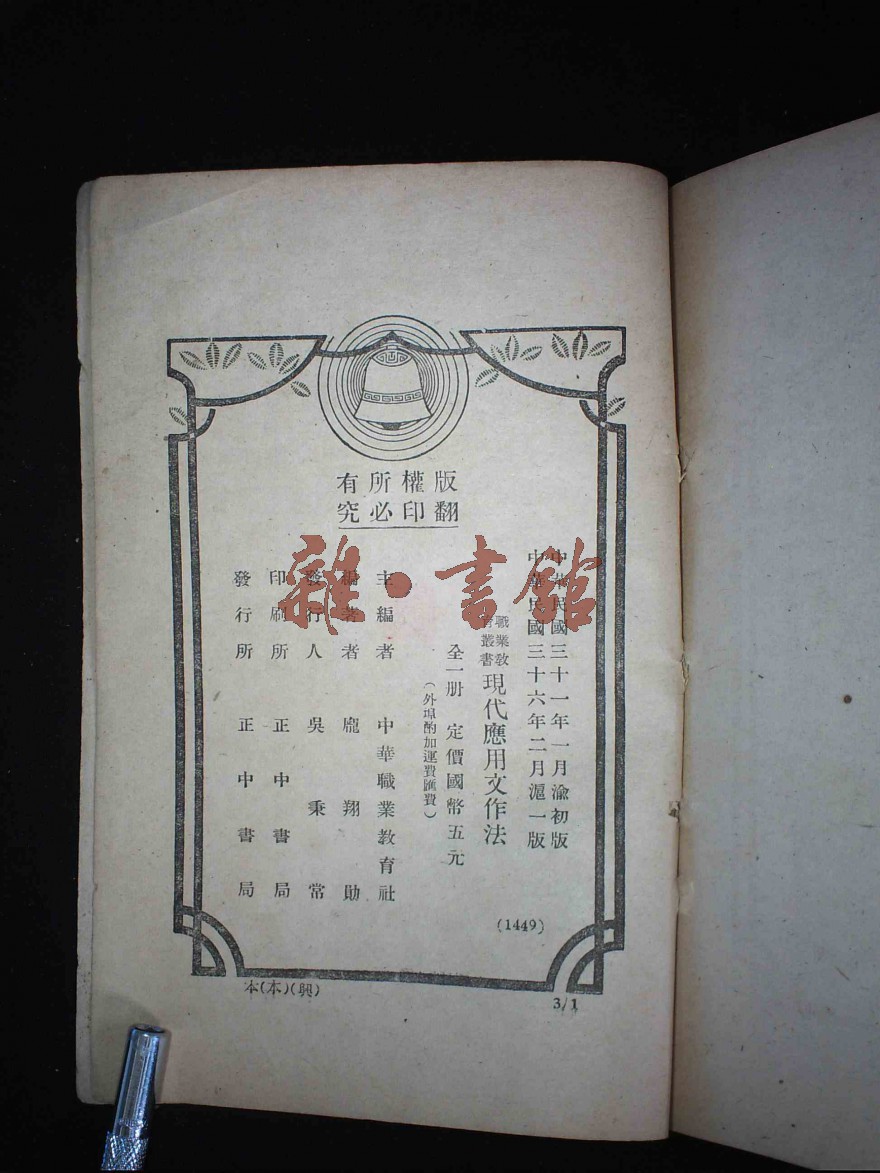 版權所有
翻印必究
中華民國三十一年一月渝初版
中華民國三十六年二月滬一版
職業教
育叢書
現代應用文作法
全一册 定價國幣五元
(外埠酌加運費匯費)
主編者 中華職業教育社
編著者 龐翔勛
發行人 吳秉常
印刷所 正中書局
發行所 正中書局
(1449)
本(本)(興)
3/1
雜·書館